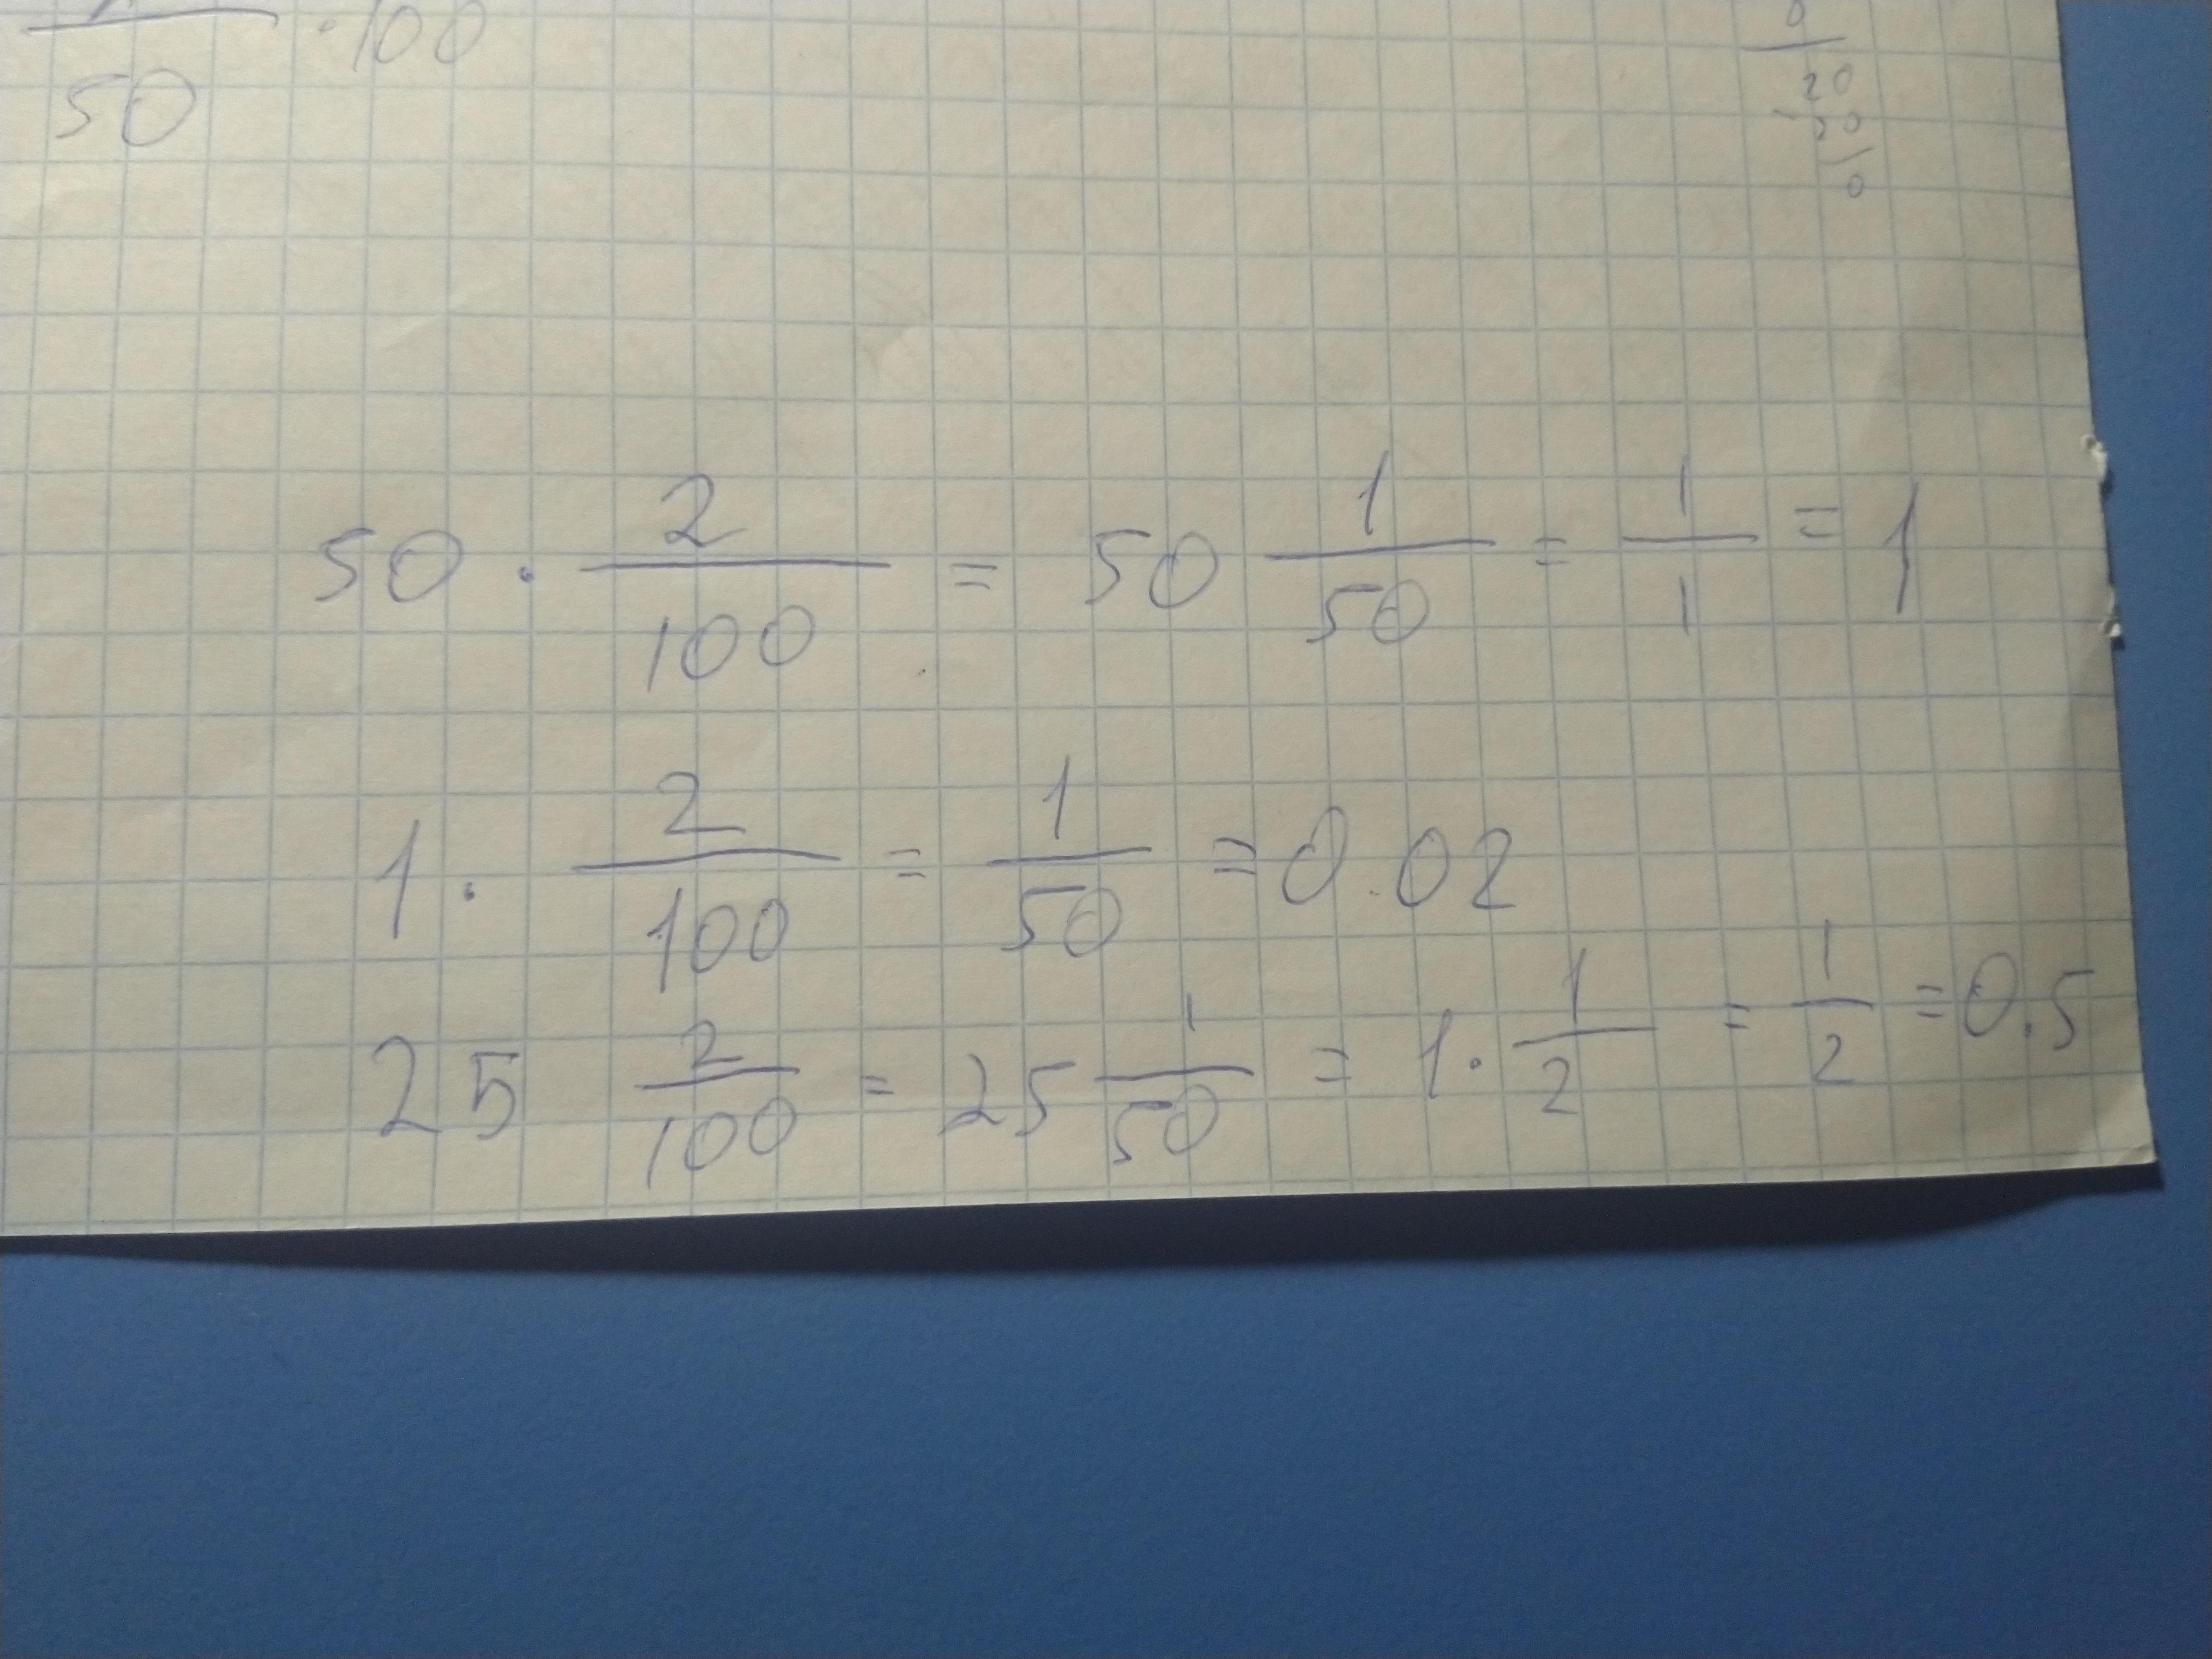 50 · 100
0
20
- 20
0
50 · 2/100 = 50 1/50 = 1/1 = 1
1 · 2/100 = 1/50 = 0.02
25 2/100 = 25 1/50 = 1 · 1/2 = 1/2 = 0.5